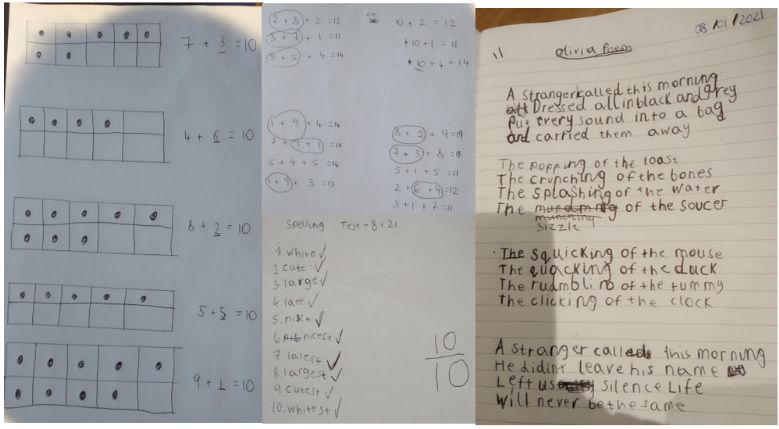 7 + 3 = 10
4 + 6 = 10
8 + 2 = 10
5 + 5 = 10
9 + 1 = 10
2 + 8 + 2 = 12
3 + 7 + 1 = 11
5 + 5 + 4 = 14
or
10 + 2 = 12
10 + 1 = 11
10 + 4 = 14
1 + 9 + 4 = 14
7 + 9 + 1 =
5 + 4 + 5 = 14
1 + 9 + 3 = 13
8 + 2 + 9 = 19
7 + 3 + 8 = 18
5 + 1 + 5 = 11
2 + 6 + 4 = 12
3 + 1 + 7 = 11
Spelling Test - 8 1 21
1 white
2 cute
3 large
4 late
5. nice
6 nicest
7 latest
8. largest
9 cutest
10. whitest
10
10
08/01/2021
Olivia Poem
A stranger called this morning
Dressed all in black and grey
Put every sound into a bag
and carried them away
The popping of the toast
The crunching of the bones
The splashing of the water
The of the soucer
munching
sizzle
The squicking of the mouse
The quacking of the duck
The of the tummy
The clicking of the clock
A stranger called this morning
He didint leave his name
Left us silence Life
Will never be the same